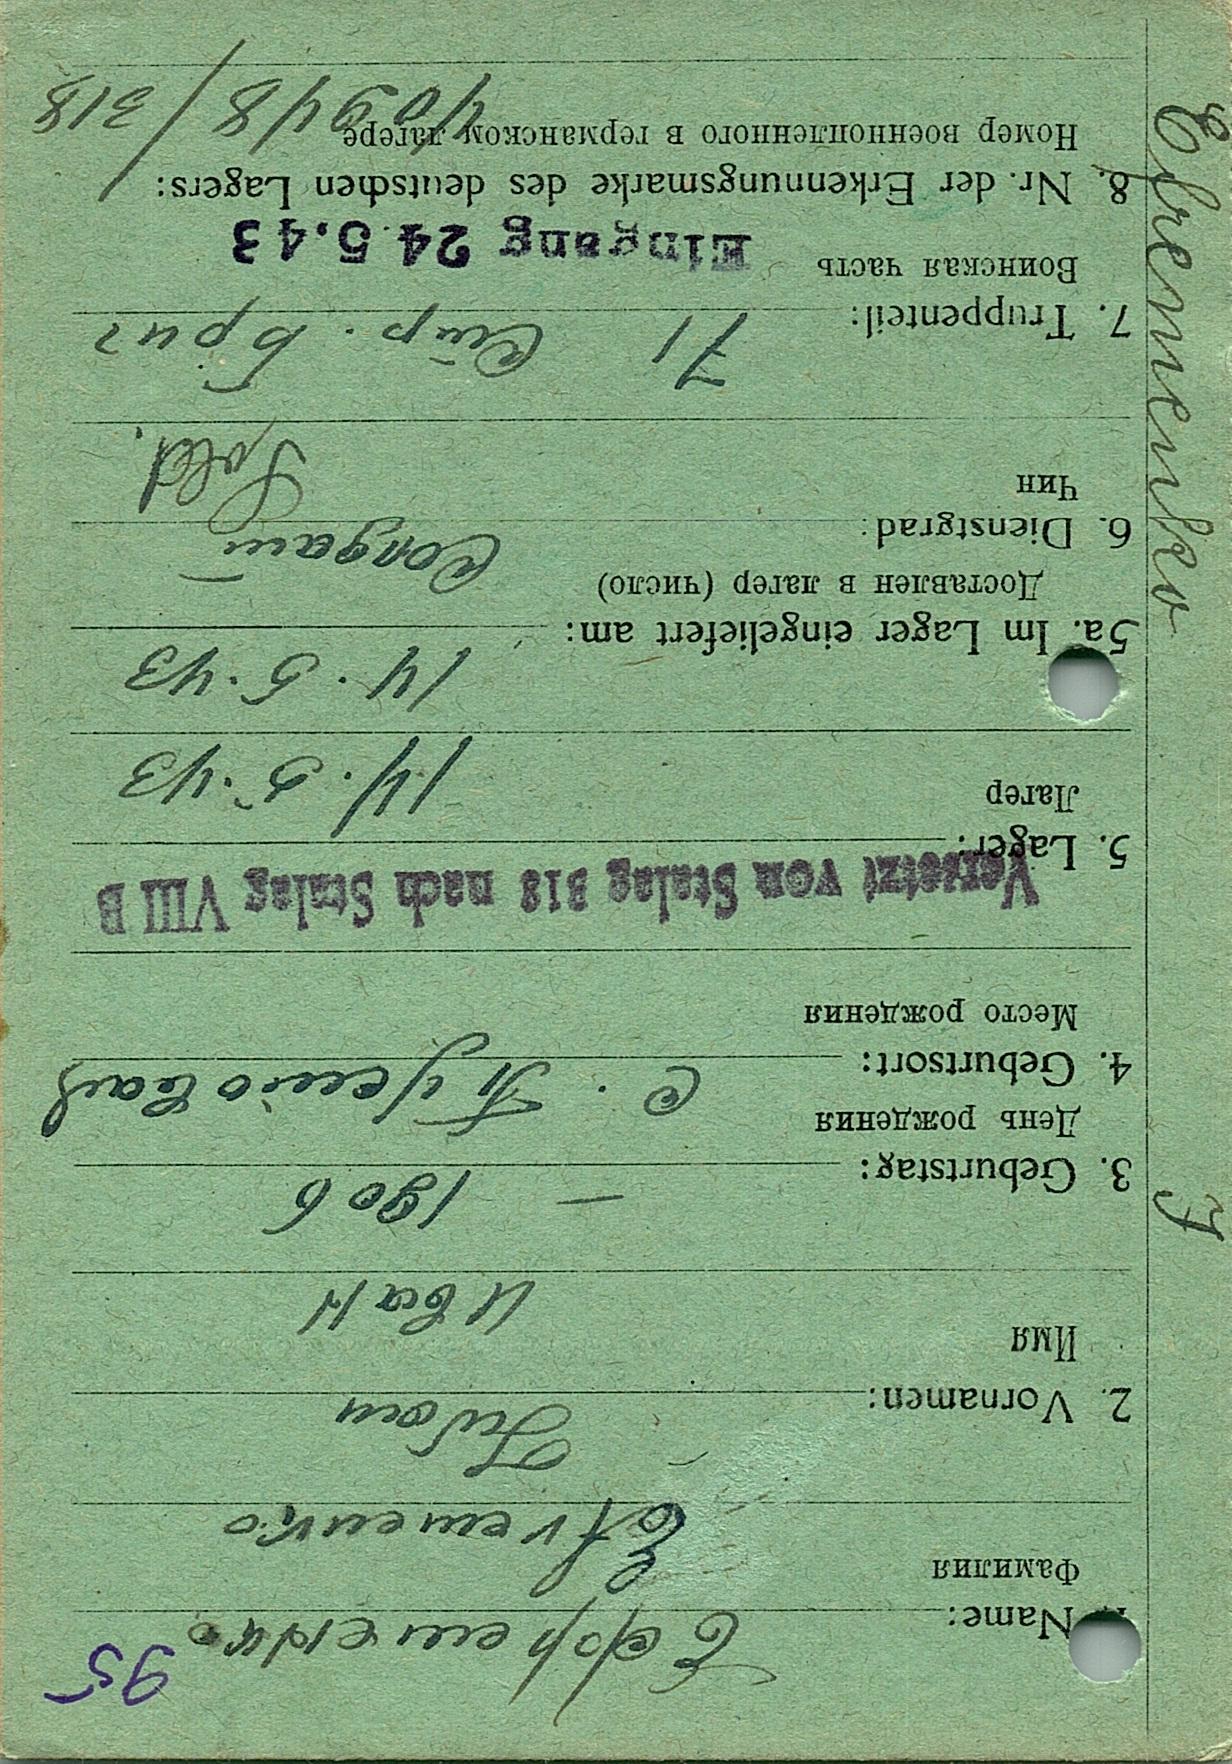 Efremenko J
95
1. Name: Ефременко
Фамилия
Efremenko
2. Vornamen: Iwan
Имя
Иван
3. Geburtstag: — 1906
День рождения
4. Geburtsort: с.
Место рождения
Versetzt von Stalag 318 nach Stalag VIII B
5. Lager:
Лагер
14.5.43
14.5.43
5a. Im Lager eingeliefert am:
Доставлен в лагер (число)
6. Dienstgrad: Солдат
Чин
Sold.
7. Truppenteil: 71 Стр. Бриг
Воинская часть
Eingang 24.5.43
8. Nr. der Erkennungsmarke des deutschen Lagers:
Номер военнопленного в германском лагере
40948/318